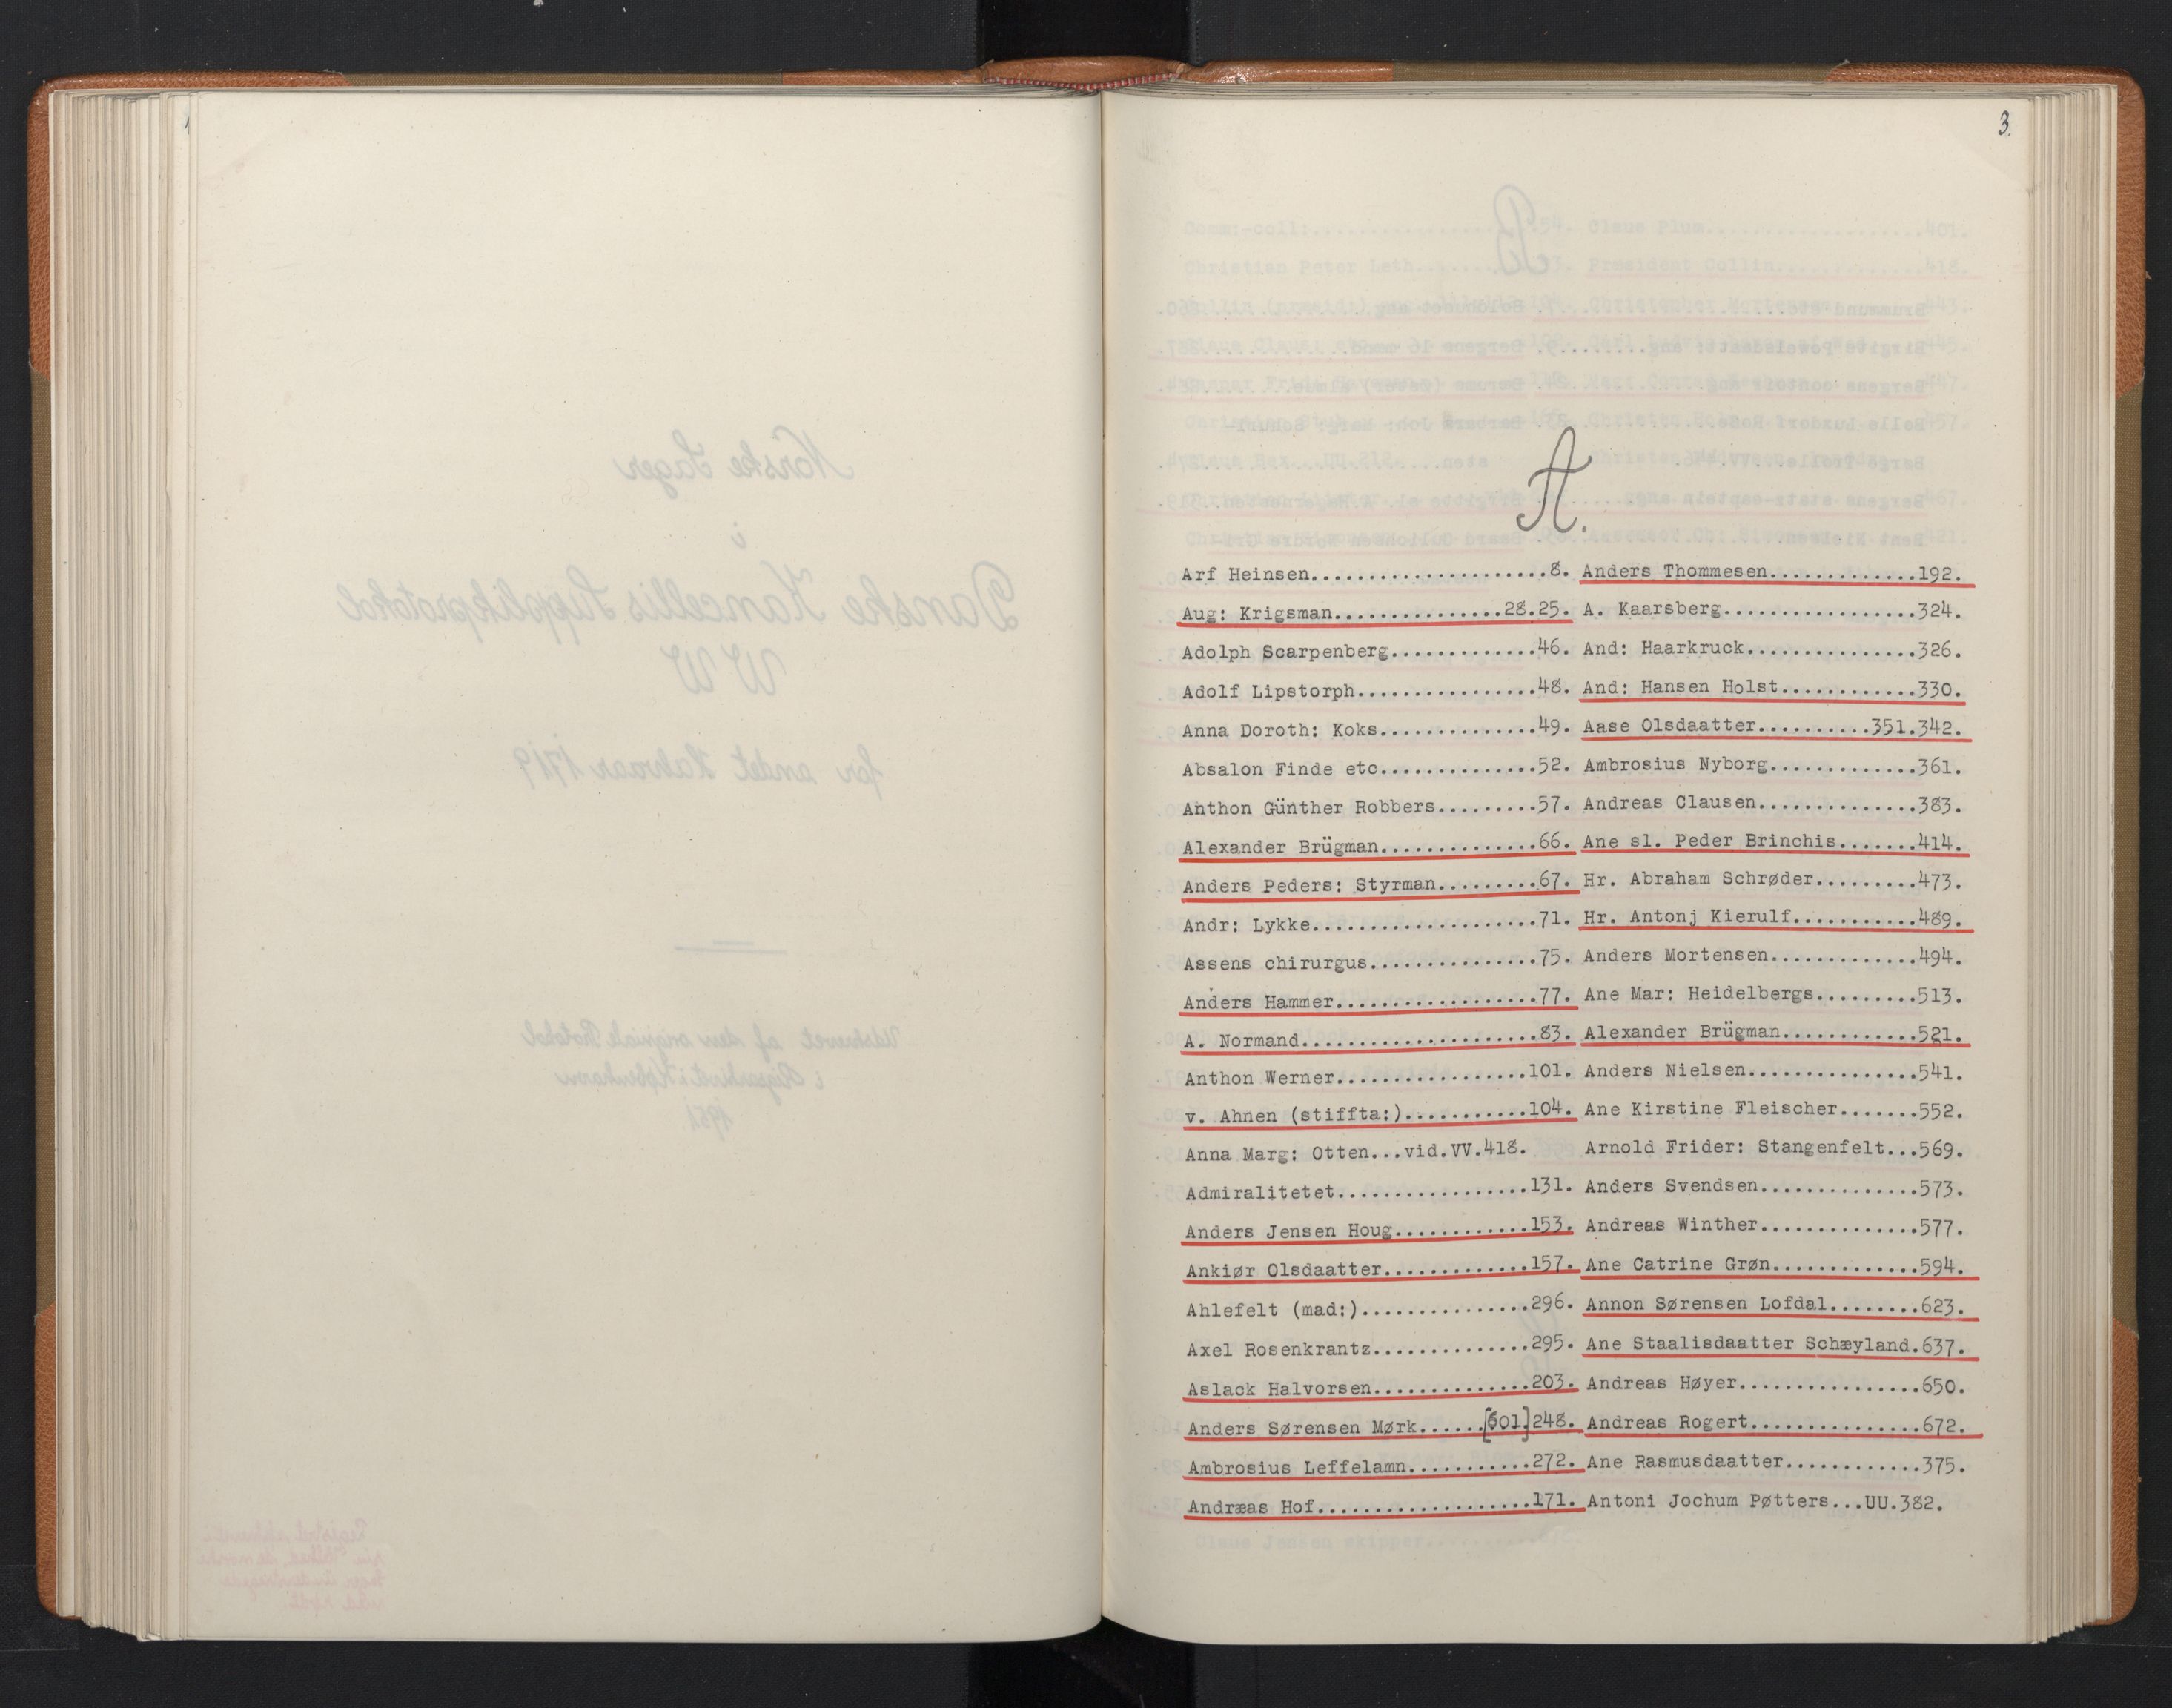 3.
A.
Arf Heinsen.....................8.
Aug: Krigsman................28.25.
Adolph Scarpenberg..............46.
Adolf Lipstorph.................48.
Anna Doroth: Koks...............49.
Absalon Finde etc...............52.
Anthon Günther Robbers..........57.
Alexander Brügman...............66.
Anders Peders: Styrman..........67.
Andr: Lykke.....................71.
Assens chirurgus................75.
Anders Hammer...................77.
A. Normand......................83.
Anthon Werner..................101.
v. Ahnen (stiffta:)............104.
Anna Marg: Otten...vid.VV.418.
Admiralitetet..................131.
Anders Jensen Houg.............153.
Ankiør Olsdaatter..............157.
Ahlefelt (mad:)................296.
Axel Rosenkrantz...............295.
Aslack Halvorsen...............203.
Anders Sørensen Mørk......[601]248.
Ambrosius Leffelamn............272.
Andræas Hof....................171.
Anders Thommesen..............192.
A. Kaarsberg...................324.
And: Haarkruck.................326.
And: Hansen Holst..............330.
Aase Olsdaatter...........351.342.
Ambrosius Nyborg...............361.
Andreas Clausen................383.
Ane sl. Peder Brinchis.......414.
Hr. Abraham Schrøder.........473.
Hr. Antonj Kierulf...........489.
Anders Mortensen..............494.
Ane Mar: Heidelbergs.........513.
Alexander Brügman.............521.
Anders Nielsen................541.
Ane Kirstine Fleischer.......552.
Arnold Frider: Stangenfelt...569.
Anders Svendsen...............573.
Andreas Winther...............577.
Ane Catrine Grøn..............594.
Annon Sørensen Lofdal........623.
Ane Staalisdaatter Schæyland.637.
Andreas Høyer.................650.
Andreas Rogert................672.
Ane Rasmusdaatter.............375.
Antoni Jochum Pøtters...UU.382.